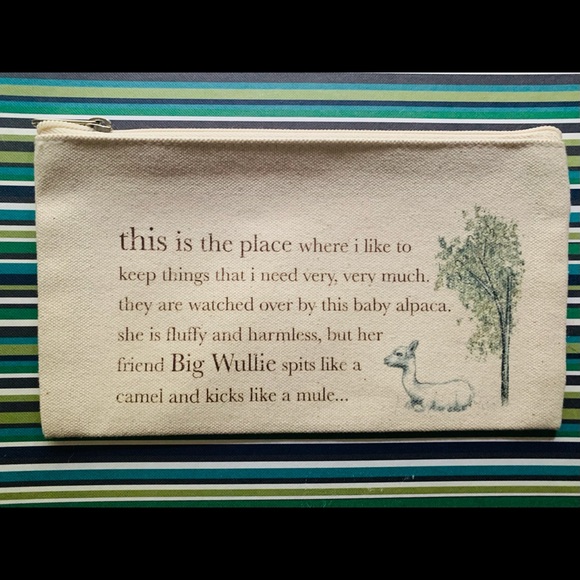 this is the place where i like to
keep things that i need very, very much.
they are watched over by this baby alpaca.
she is fluffy and harmless, but her
friend Big Wullie spits like a
camel and kicks like a mule...